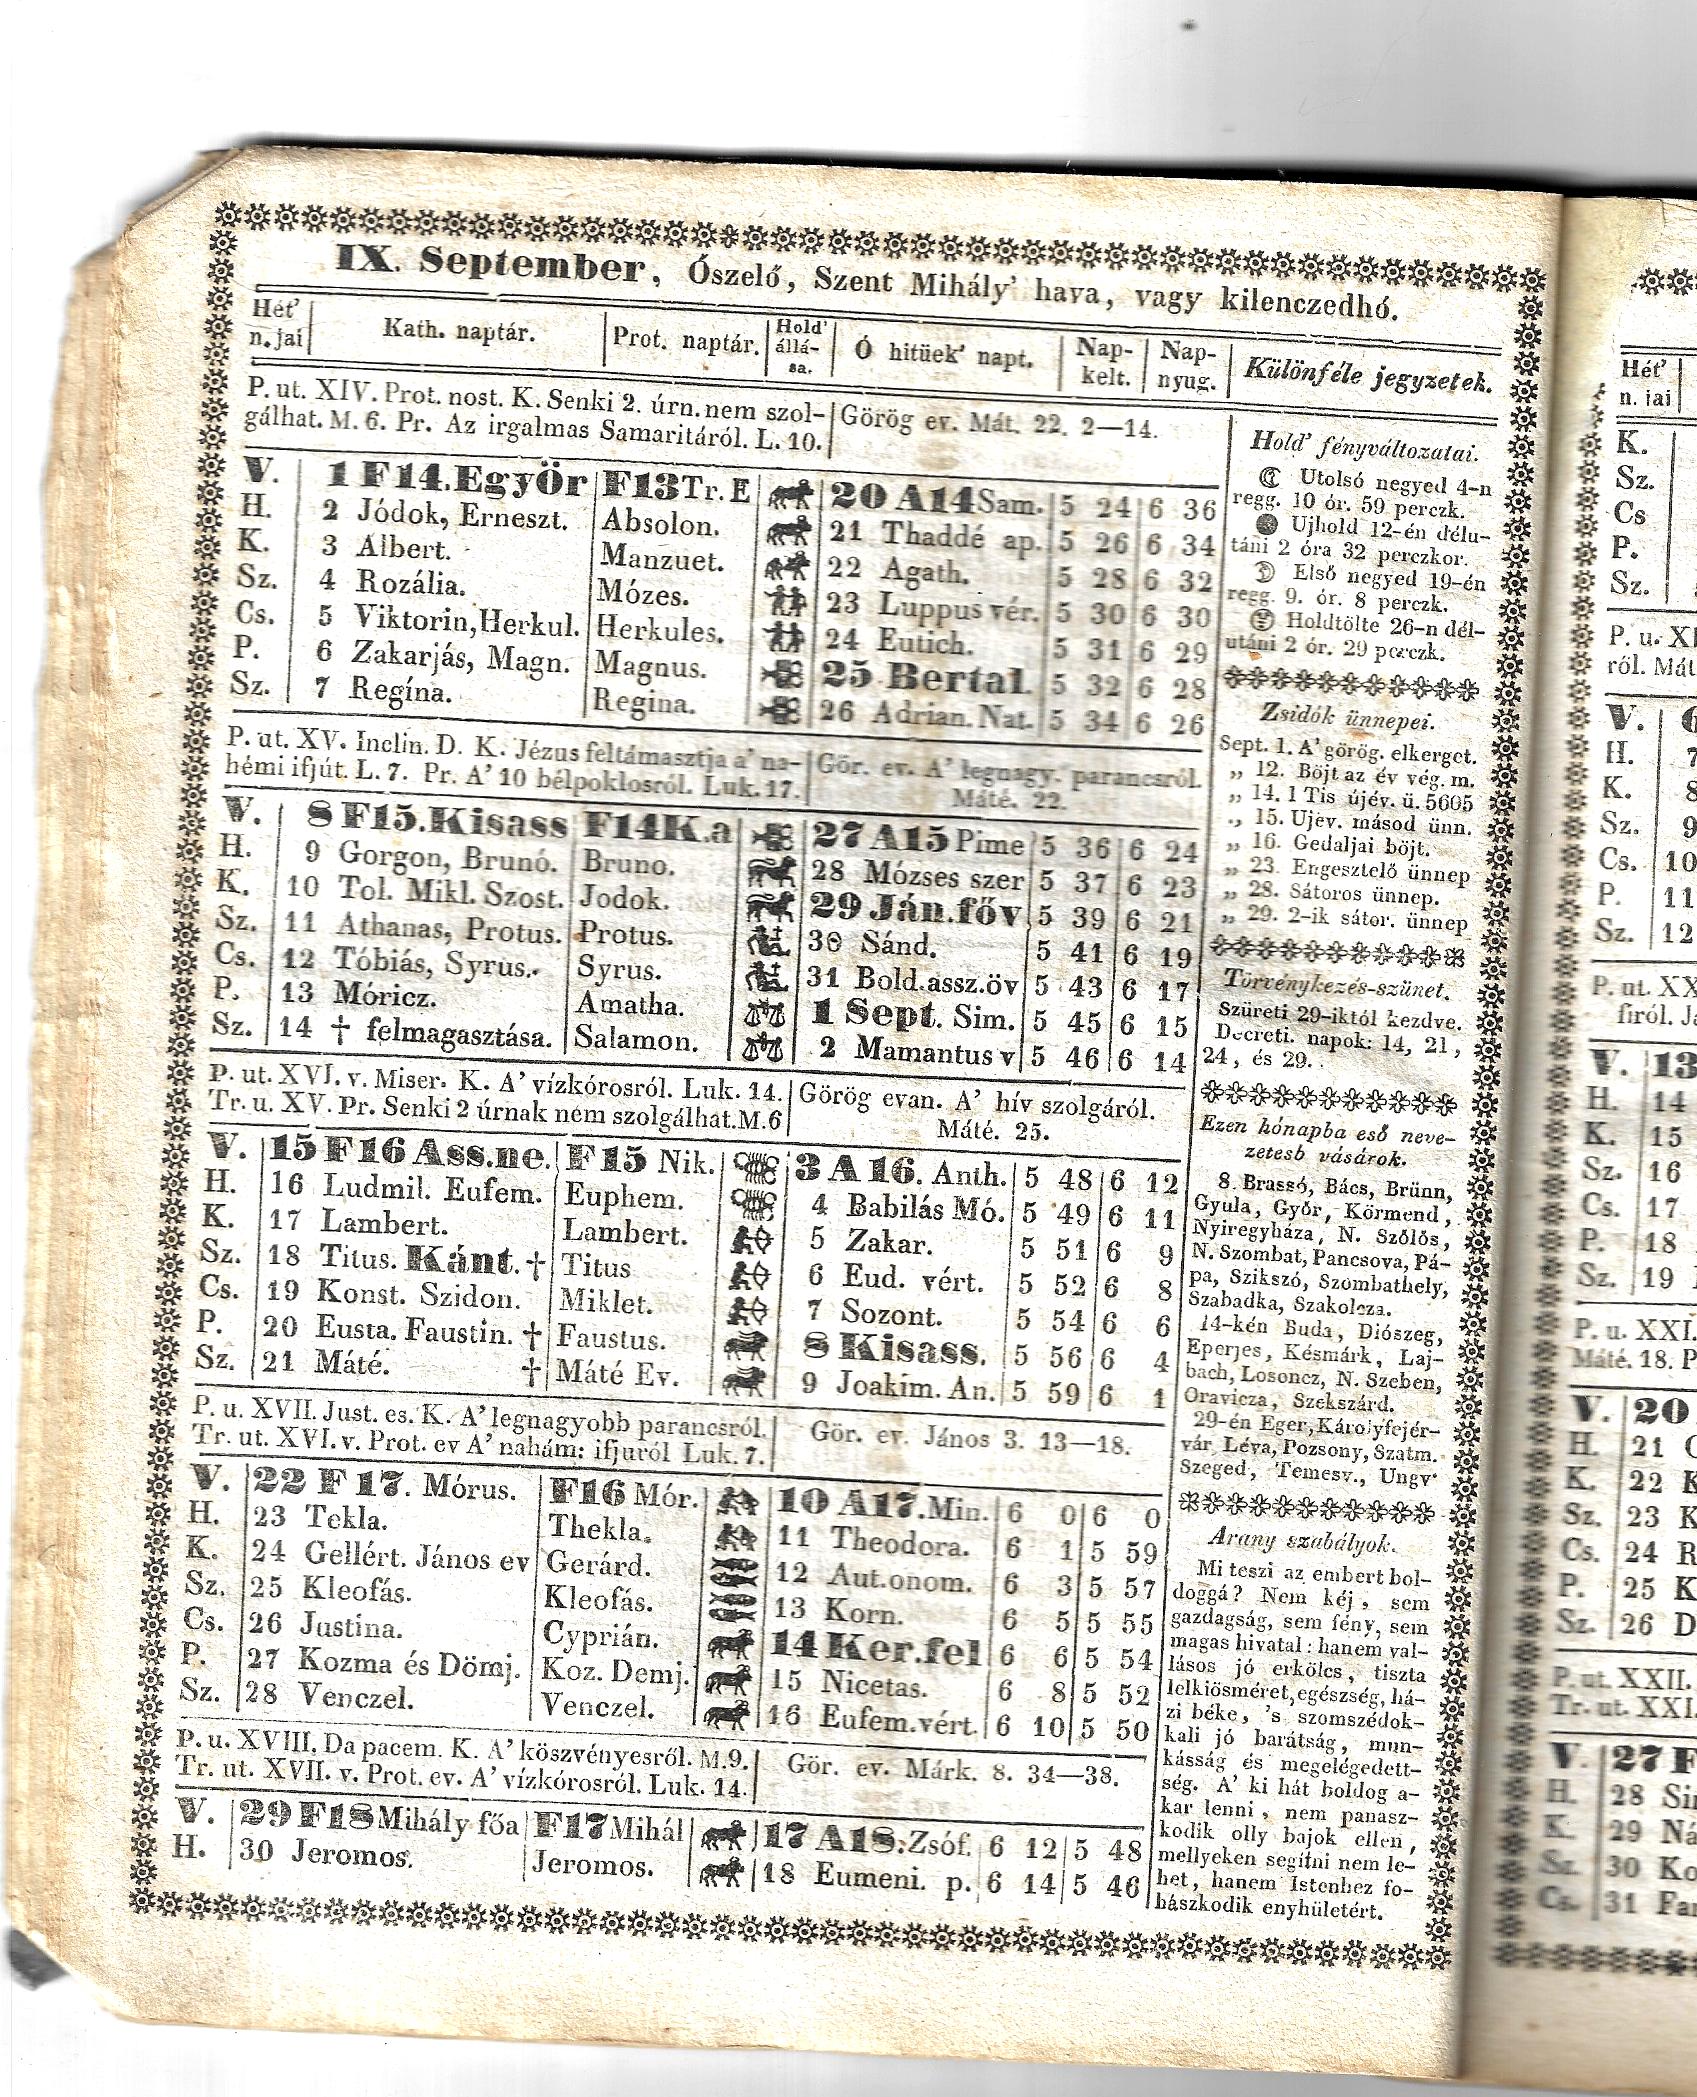 IX. September, Őszelő, Szent Mihály' hava, vagy kilenczedhó.
Hét' n.jai | Kath. naptár. | Prot. naptár. | Hold' állá-sa. | Ó hitüek' napt. | Nap-kelt. | Nap-nyug. | Különféle jegyzetek.
P. ut. XIV. Prot. nost. K. Senki 2. úrn. nem szol- | Görög ev. Mát. 22. 2—14.
gálhat. M. 6. Pr. Az irgalmas Samaritáról. L. 10.
V. 1 F14.EgyÖr F13Tr.E 20 A14Sam. 5 24 6 36
H. 2 Jódok, Erneszt. Absolon. 21 Thaddé ap. 5 26 6 34
K. 3 Albert. Manzuet. 22 Agath. 5 28 6 32
Sz. 4 Rozália. Mózes. 23 Luppus vér. 5 30 6 30
Cs. 5 Viktorin,Herkul. Herkules. 24 Eutich. 5 31 6 29
P. 6 Zakarjás, Magn. Magnus. 25 Bertal. 5 32 6 28
Sz. 7 Regína. Regina. 26 Adrian. Nat. 5 34 6 26
P. ut. XV. Inclin. D. K. Jézus feltámasztja a' na- | Gör. ev. A' legnagy. parancsról.
hémi ifjút. L. 7. Pr. A' 10 bélpoklosról. Luk. 17. | Máté. 22.
V. 8 F15.Kisass F14K.a 27 A15 Pime 5 36 6 24
H. 9 Gorgon, Brunó. Bruno. 28 Mózses szer 5 37 6 23
K. 10 Tol. Mikl. Szost. Jodok. 29 Ján.főv 5 39 6 21
Sz. 11 Athanas, Protus. Protus. 30 Sánd. 5 41 6 19
Cs. 12 Tóbiás, Syrus. Syrus. 31 Bold.assz.öv 5 43 6 17
P. 13 Móricz. Amatha. 1 Sept. Sim. 5 45 6 15
Sz. 14 † felmagasztása. Salamon. 2 Mamantus v 5 46 6 14
P. ut. XVI. v. Miser. K. A' vízkórosról. Luk. 14. | Görög evan. A' hív szolgáról.
Tr. u. XV. Pr. Senki 2 úrnak nem szolgálhat.M.6 | Máté. 25.
V. 15 F16 Ass.ne. F15 Nik. 3 A 16. Anth. 5 48 6 12
H. 16 Ludmil. Eufem. Euphem. 4 Babilás Mó. 5 49 6 11
K. 17 Lambert. Lambert. 5 Zakar. 5 51 6 9
Sz. 18 Titus. Kánt. † Titus 6 Eud. vért. 5 52 6 8
Cs. 19 Konst. Szidon. Miklet. 7 Sozont. 5 54 6 6
P. 20 Eusta. Faustin. † Faustus. 8 Kisass. 5 56 6 4
Sz. 21 Máté. † Máté Ev. 9 Joakim. An. 5 59 6 1
P. u. XVII. Just. es. K. A' legnagyobb parancsról. | Gör. ev. János 3. 13—18.
Tr. ut. XVI. v. Prot. ev A' nahám: ifjuról Luk. 7.
V. 22 F 17. Mórus. F16 Mór. 10 A17.Min. 6 0 6 0
H. 23 Tekla. Thekla. 11 Theodora. 6 1 5 59
K. 24 Gellért. János ev Gerárd. 12 Aut.onom. 6 3 5 57
Sz. 25 Kleofás. Kleofás. 13 Korn. 6 5 5 55
Cs. 26 Justina. Cyprián. 14 Ker.fel 6 6 5 54
P. 27 Kozma és Dömj. Koz. Demj. 15 Nicetas. 6 8 5 52
Sz. 28 Venczel. Venczel. 16 Eufem.vért. 6 10 5 50
P. u. XVIII. Da pacem. K. A' köszvényesről. M.9. | Gör. ev. Márk. 8. 34—38.
Tr. ut. XVII. v. Prot. ev. A' vízkórosról. Luk. 14.
V. 29 F18 Mihály főa F17 Mihál 17 A18.Zsóf. 6 12 5 48
H. 30 Jeromos. Jeromos. 18 Eumeni. p. 6 14 5 46
Hold' fényváltozatai.
Utolsó negyed 4-n
regg. 10 ór. 59 perczk.
Ujhold 12-én délu-
táni 2 óra 32 perczkor.
Első negyed 19-én
regg. 9. ór. 8 perczk.
Holdtölte 26-n dél-
utáni 2 ór. 29 perczk.
Zsidók ünnepei.
Sept. 1. A' görög. elkerget.
„ 12. Böjt az év vég. m.
„ 14. 1 Tis újév. ü. 5605
„ 15. Ujév. másod ünn.
„ 16. Gedaljai böjt.
„ 23. Engesztelő ünnep
„ 28. Sátoros ünnep.
„ 29. 2-ik sátor. ünnep
Törvénykezés-szünet.
Szüreti 29-iktól kezdve.
Decreti. napok: 14, 21,
24, és 29.
Ezen hónapba eső neve-
zetesb vásárok.
8. Brassó, Bács, Brünn,
Gyula, Győr, Körmend,
Nyiregyháza, N. Szőlős,
N. Szombat, Pancsova, Pá-
pa, Szikszó, Szombathely,
Szabadka, Szakolcza.
14-kén Buda, Diószeg,
Eperjes, Késmárk, Laj-
bach, Losoncz, N. Szeben,
Oravicza, Szekszárd.
29-én Eger, Károlyfejér-
vár, Léva, Pozsony, Szatm.
Szeged, Temesv., Ungv
Arany szabályok.
Mi teszi az embert bol-
doggá? Nem kéj, sem
gazdagság, sem fény, sem
magas hivatal: hanem val-
lásos jó erkölcs, tiszta
lelkiösméret, egészség, há-
zi béke, 's szomszédok-
kali jó barátság, mun-
kásság és megelégedett-
ség. A' ki hát boldog a-
kar lenni, nem panasz-
kodik olly bajok ellen,
mellyeken segítni nem le-
het, hanem Istenhez fo-
hászkodik enyhületért.
Hét'
n. jai
K.
Sz.
Cs
P.
Sz.
P. u. XI
ról. Mát
V.
H. 7
K. 8
Sz. 9
Cs. 10
P. 11
Sz. 12
P. ut. XX
firól. Já
V. 13
H. 14
K. 15
Sz. 16
Cs. 17
P. 18
Sz. 19
P. u. XXI.
Máté. 18. P
V. 20
H. 21
K. 22
Sz. 23 K
Cs. 24 R
P. 25 K
Sz. 26 D
P. ut. XXII.
Tr. ut. XXI.
V. 27 F
H. 28 Sin
K. 29 Ná
Sz. 30 Ko
Cs. 31 Far